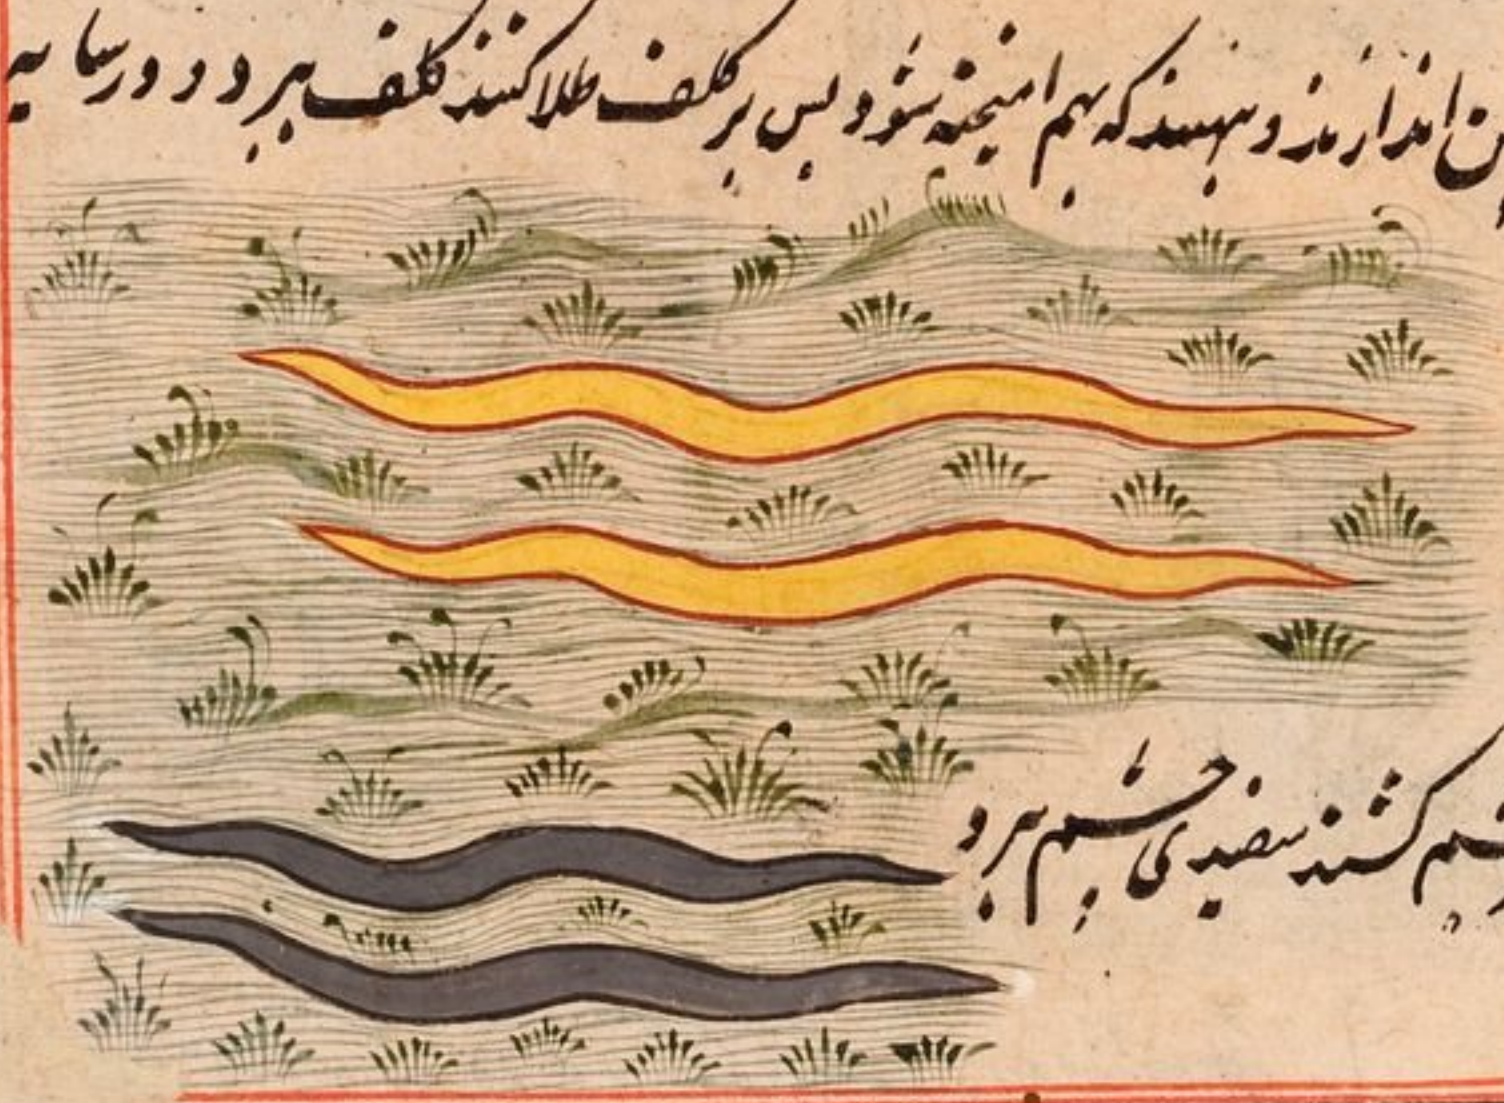 اندازند و نهند که بهم امیخته شود پس بر کلف طلا کنند کلف ببرد و در سایه
کشند سفیدی چشم ببرد